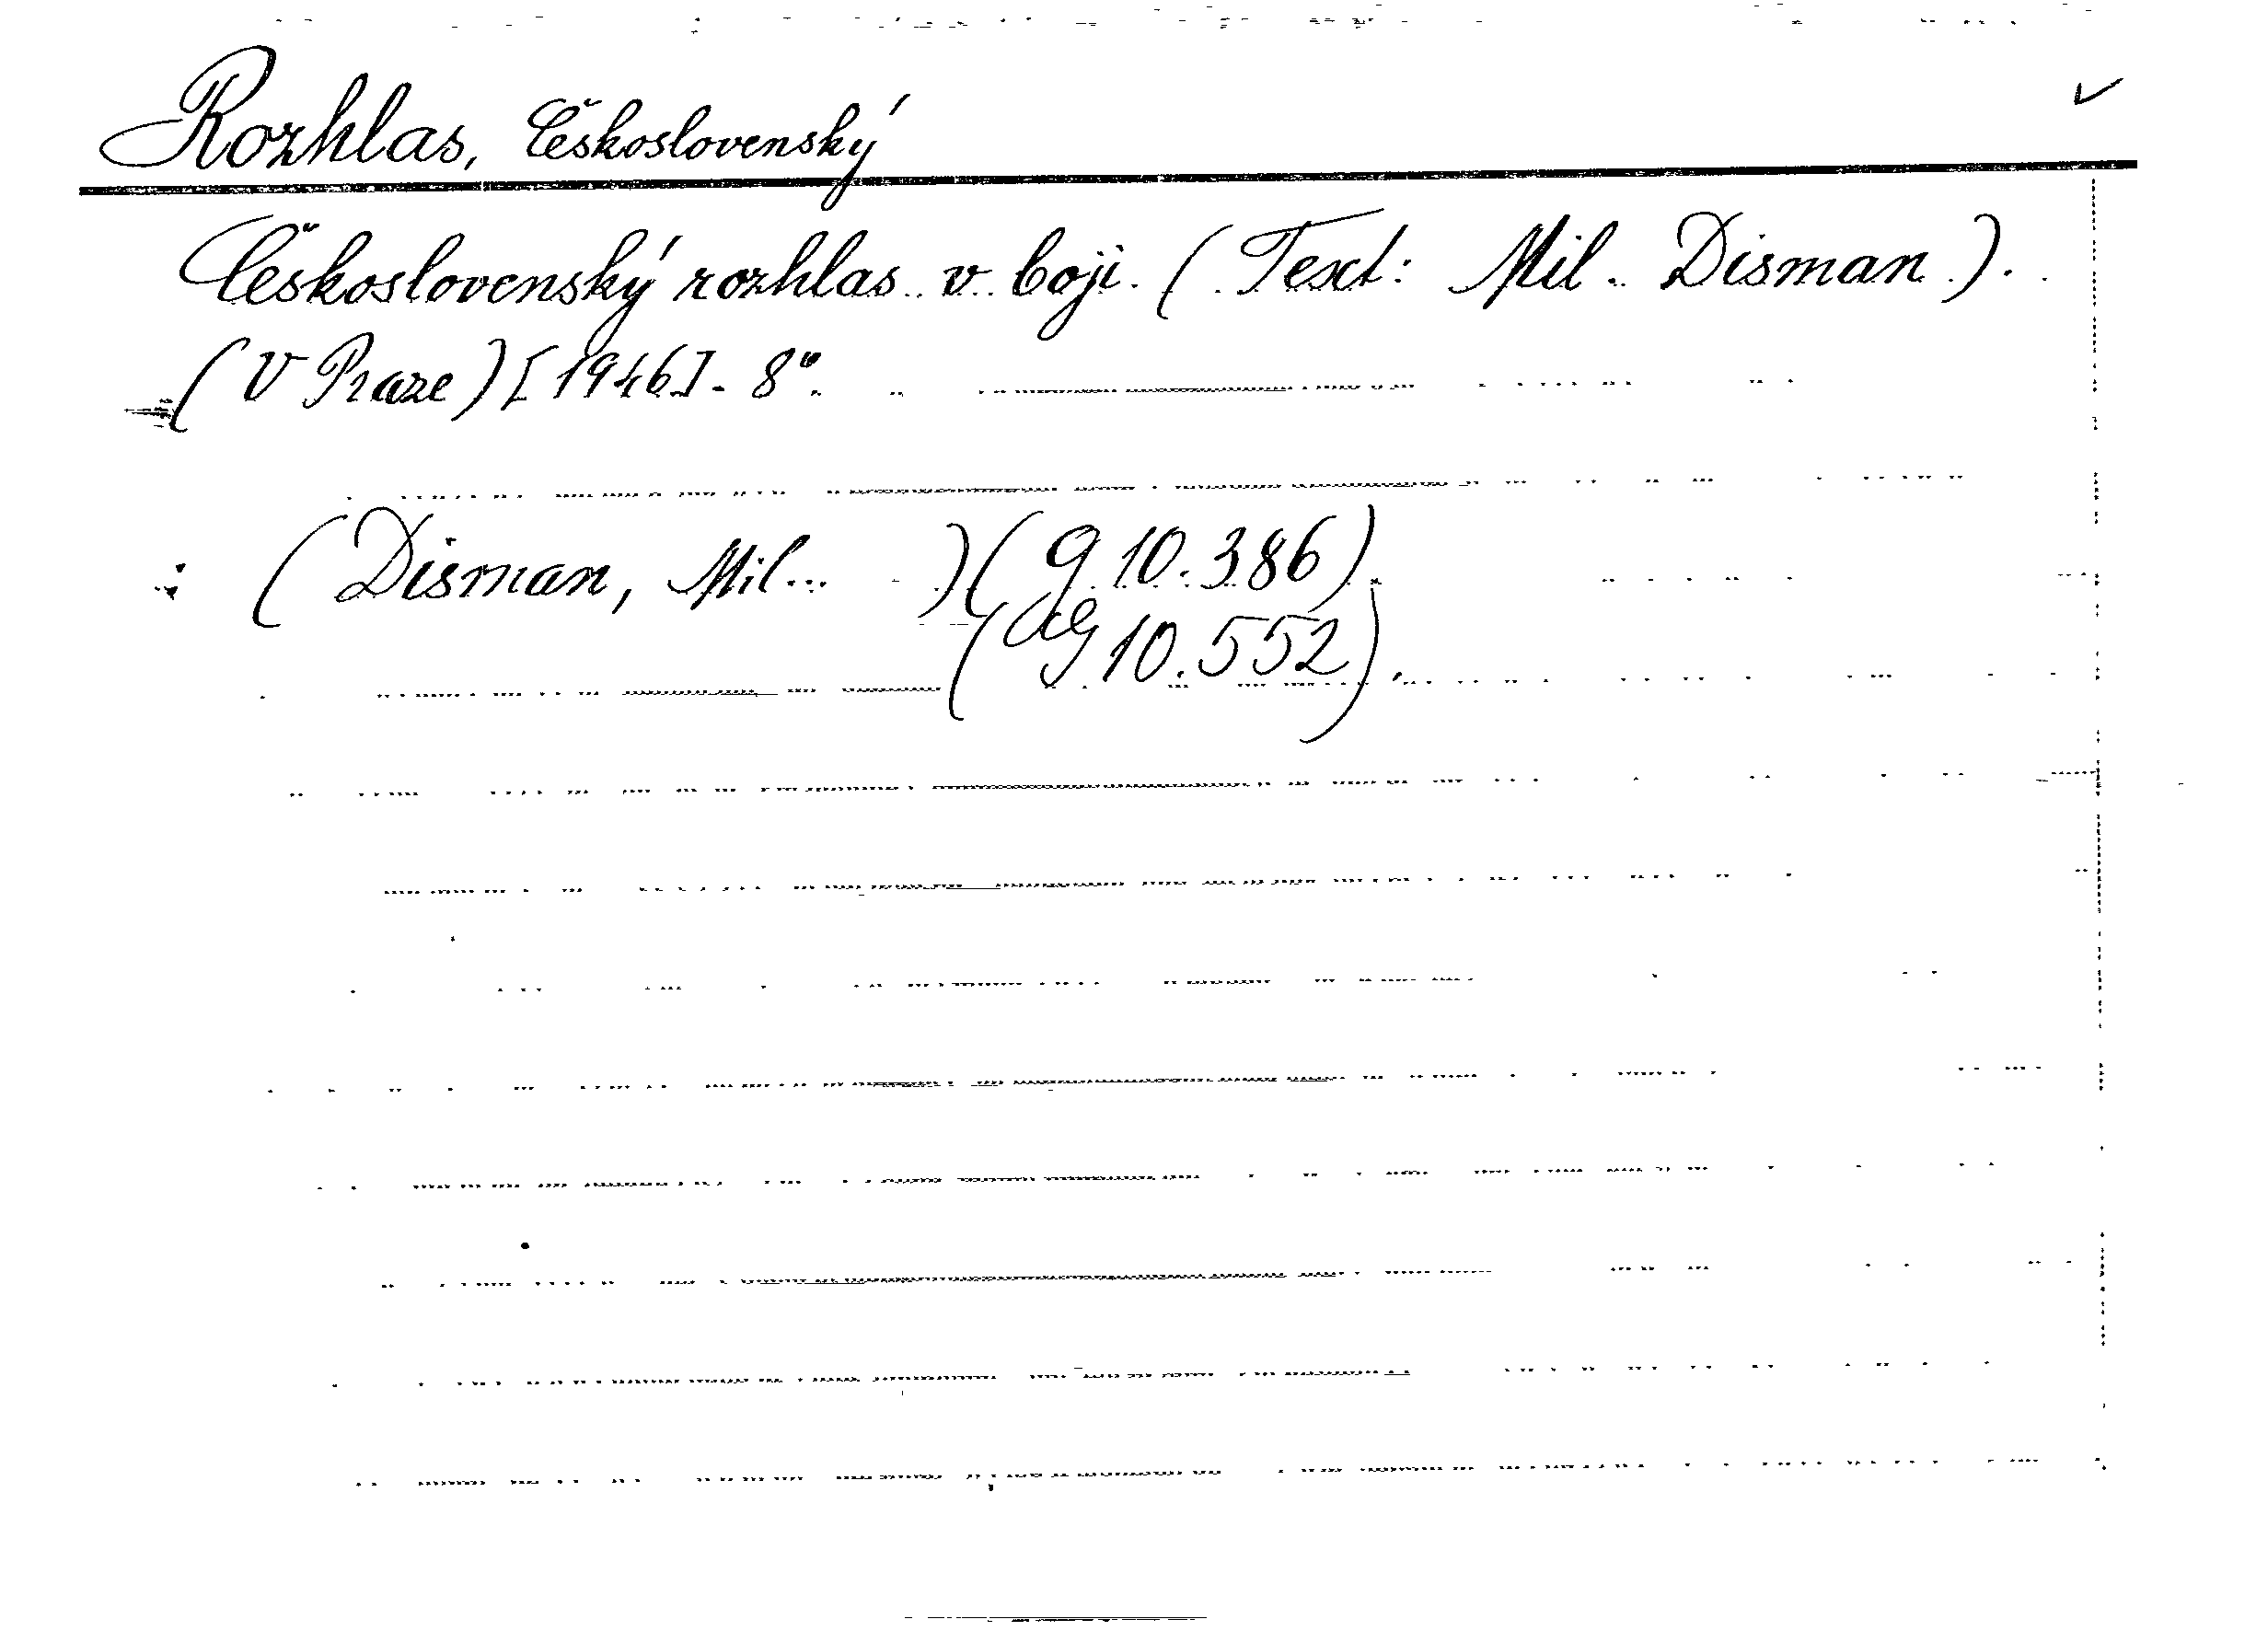 Rozhlas, Československý
Československý rozhlas v boji. (Text: Mil. Disman).
(V Praze) [1946]. 8°.
(Disman, Mil... ) (9 10.386).
10.552).